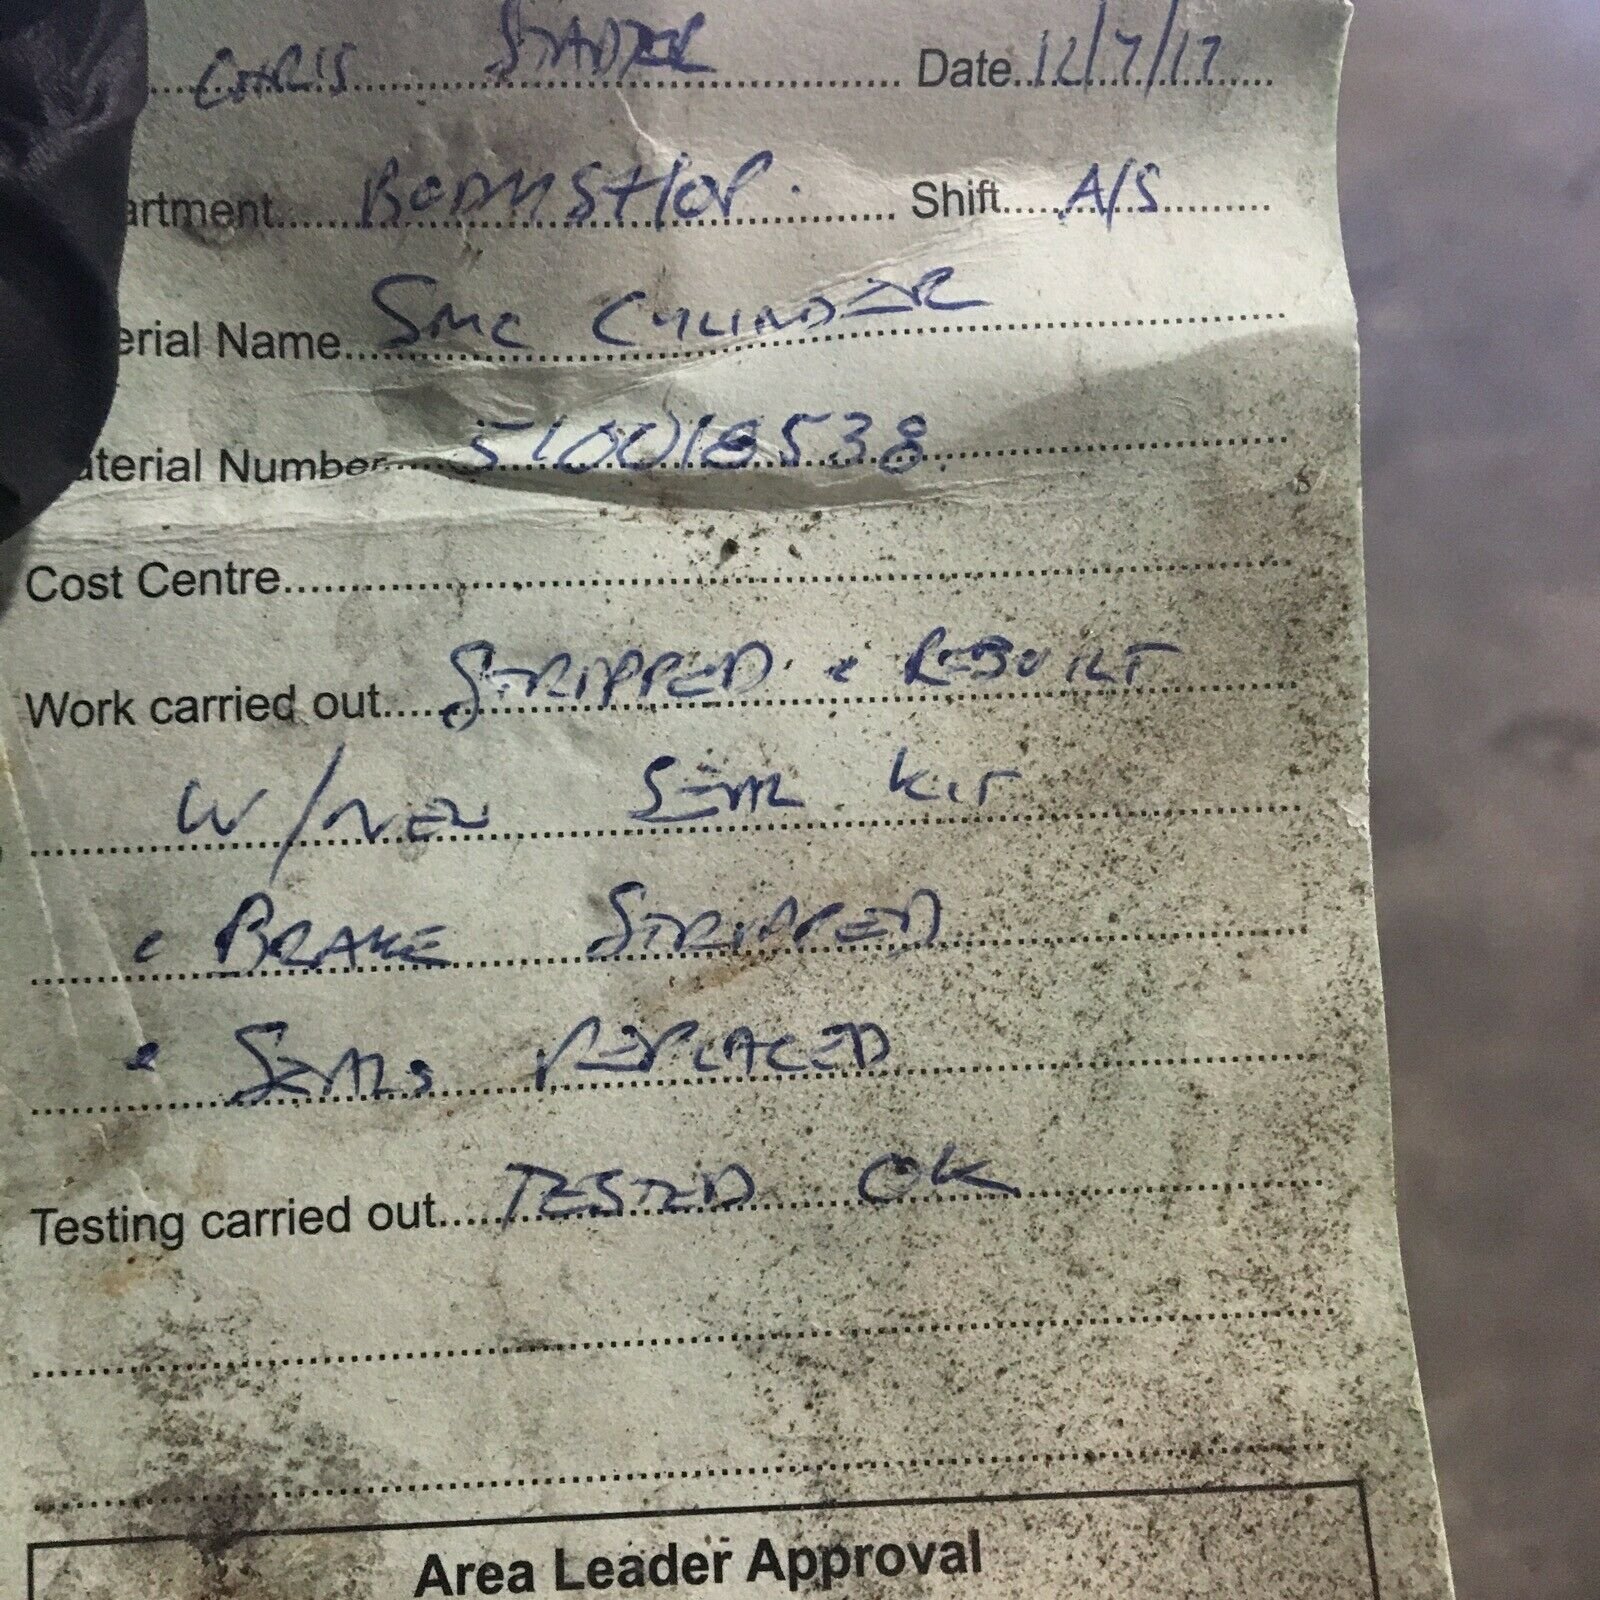 CHRIS Date 12/7/17
artment BODYSHOP. Shift A/S
erial Name SMC CYLINDER
aterial Number 510018538.
Cost Centre
Work carried out STRIPPED & REBUILT
W/NEW SEAL KIT
& BRAKE STRIPPED
& SEALS REPLACED
Testing carried out TESTED OK
Area Leader Approval